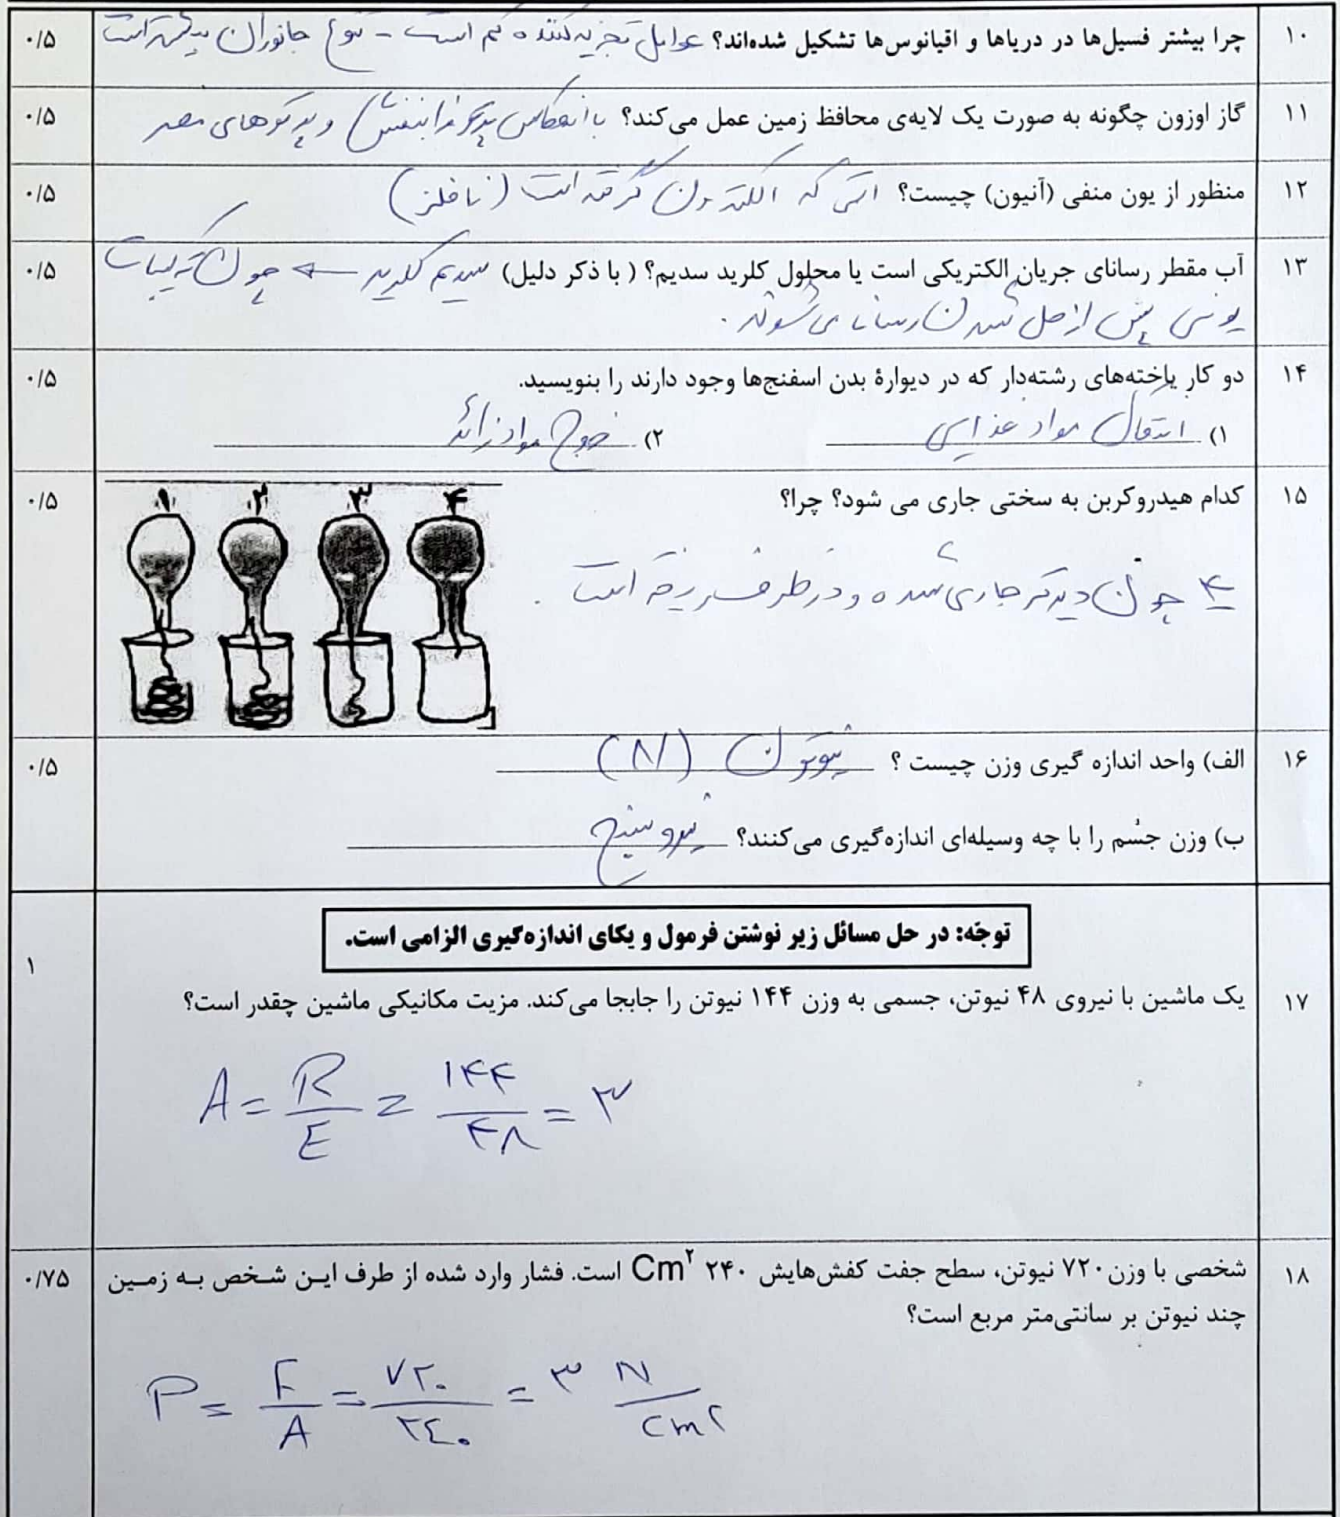 ۱۰ چرا بیشتر فسیل‌ها در دریاها و اقیانوس‌ها تشکیل شده‌اند؟ عوامل تجزیه کننده کم است - تنوع جانوران بیشتر است ۰/۵
۱۱ گاز اوزون چگونه به صورت یک لایه‌ی محافظ زمین عمل می‌کند؟ با انعکاس پرتو فرابنفش و پرتوهای مضر ۰/۵
۱۲ منظور از یون منفی (آنیون) چیست؟ اتمی که الکترون گرفته است (نافلز) ۰/۵
۱۳ آب مقطر رسانای جریان الکتریکی است یا محلول کلرید سدیم؟ (با ذکر دلیل) سدیم کلرید ← چون ترکیبات ۰/۵
یونی پس از حل شدن رسانا می‌شوند.
۱۴ دو کار یاخته‌های رشته‌دار که در دیوارهٔ بدن اسفنج‌ها وجود دارند را بنویسید. ۰/۵
۱) انتقال مواد غذایی ۲) خروج مواد زائد
۱۵ کدام هیدروکربن به سختی جاری می شود؟ چرا؟ ۰/۵
۱ ۲ ۳ ۴
۴ چون دیرتر جاری شده و در ظرف ریخته است.
۱۶ الف) واحد اندازه گیری وزن چیست ؟ نیوتون (N) ۰/۵
ب) وزن جسم را با چه وسیله‌ای اندازه‌گیری می‌کنند؟ نیروسنج
توجّه: در حل مسائل زیر نوشتن فرمول و یکای اندازه‌گیری الزامی است.
۱
۱۷ یک ماشین با نیروی ۴۸ نیوتن، جسمی به وزن ۱۴۴ نیوتن را جابجا می‌کند. مزیت مکانیکی ماشین چقدر است؟
A = R/E = ۱۴۴/۴۸ = ۳
۱۸ شخصی با وزن ۷۲۰ نیوتن، سطح جفت کفش‌هایش ۲۴۰ Cm² است. فشار وارد شده از طرف این شخص به زمین ۰/۷۵
چند نیوتن بر سانتی‌متر مربع است؟
P = F/A = ۷۲۰/۲۴۰ = ۳ N/cm۲